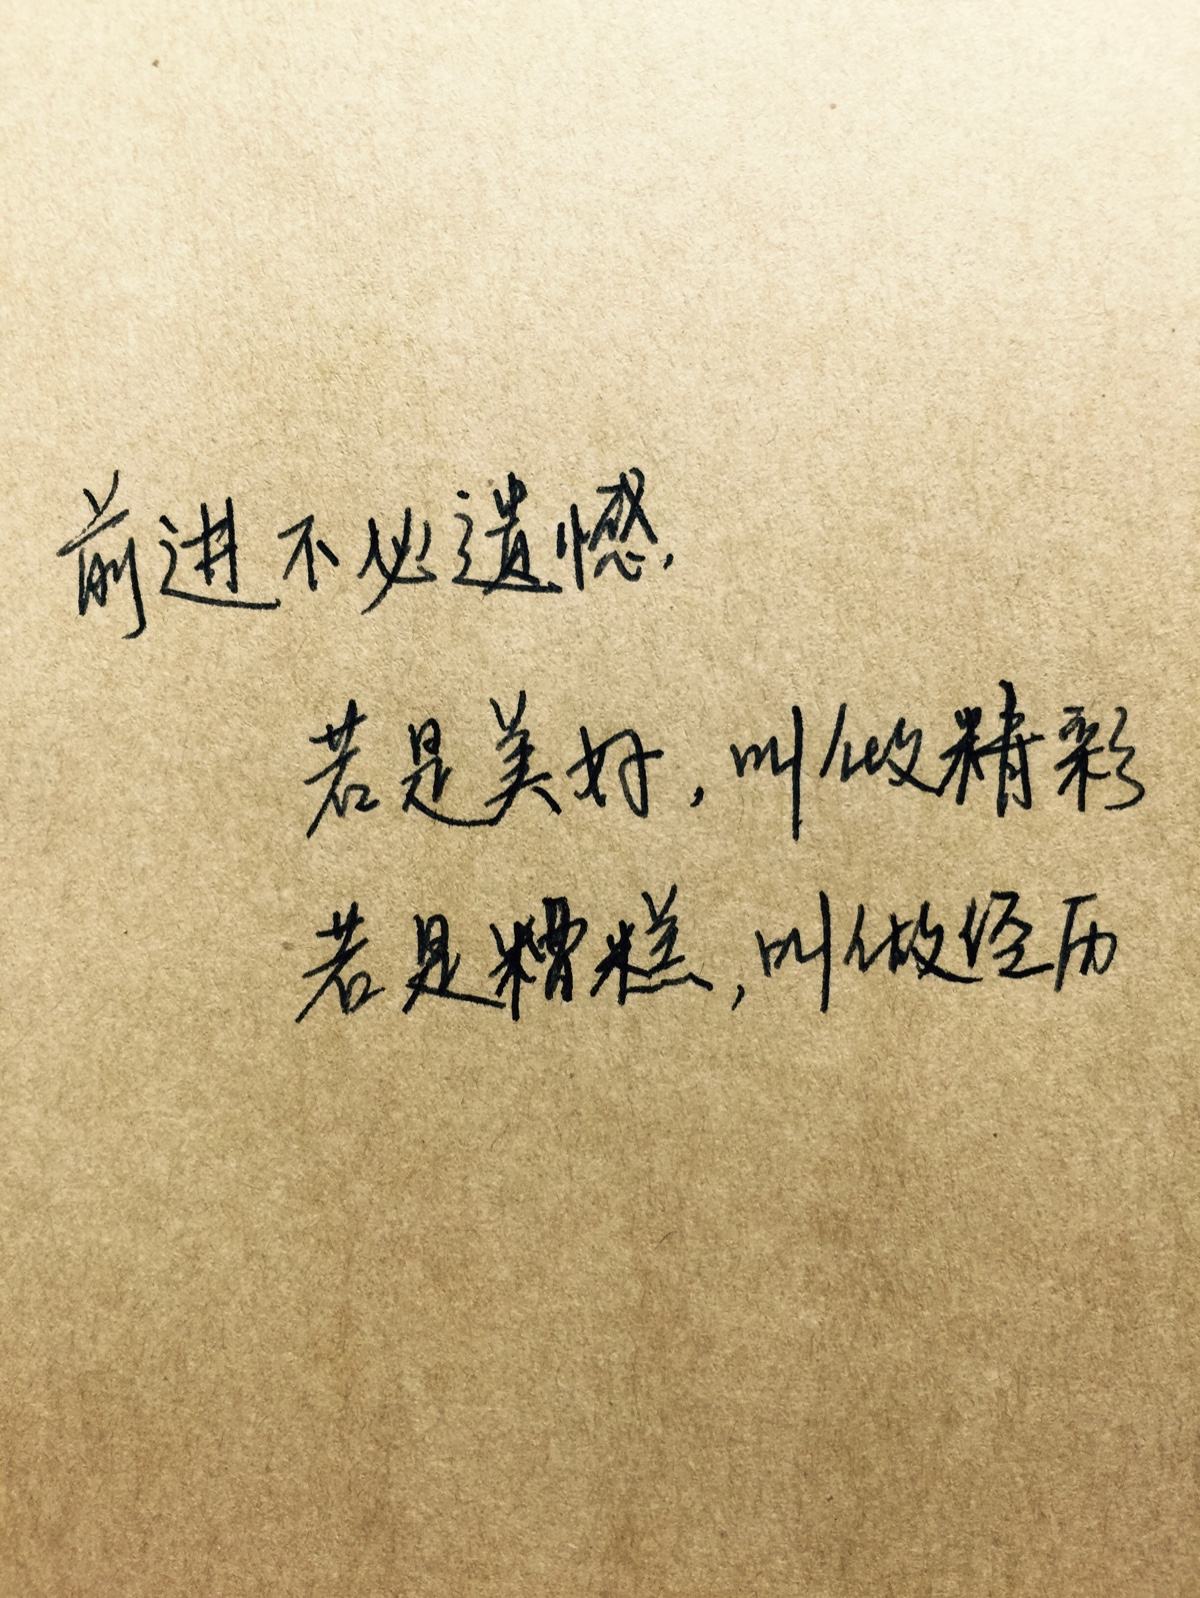 前进不必遗憾，
若是美好，叫做精彩
若是糟糕，叫做经历